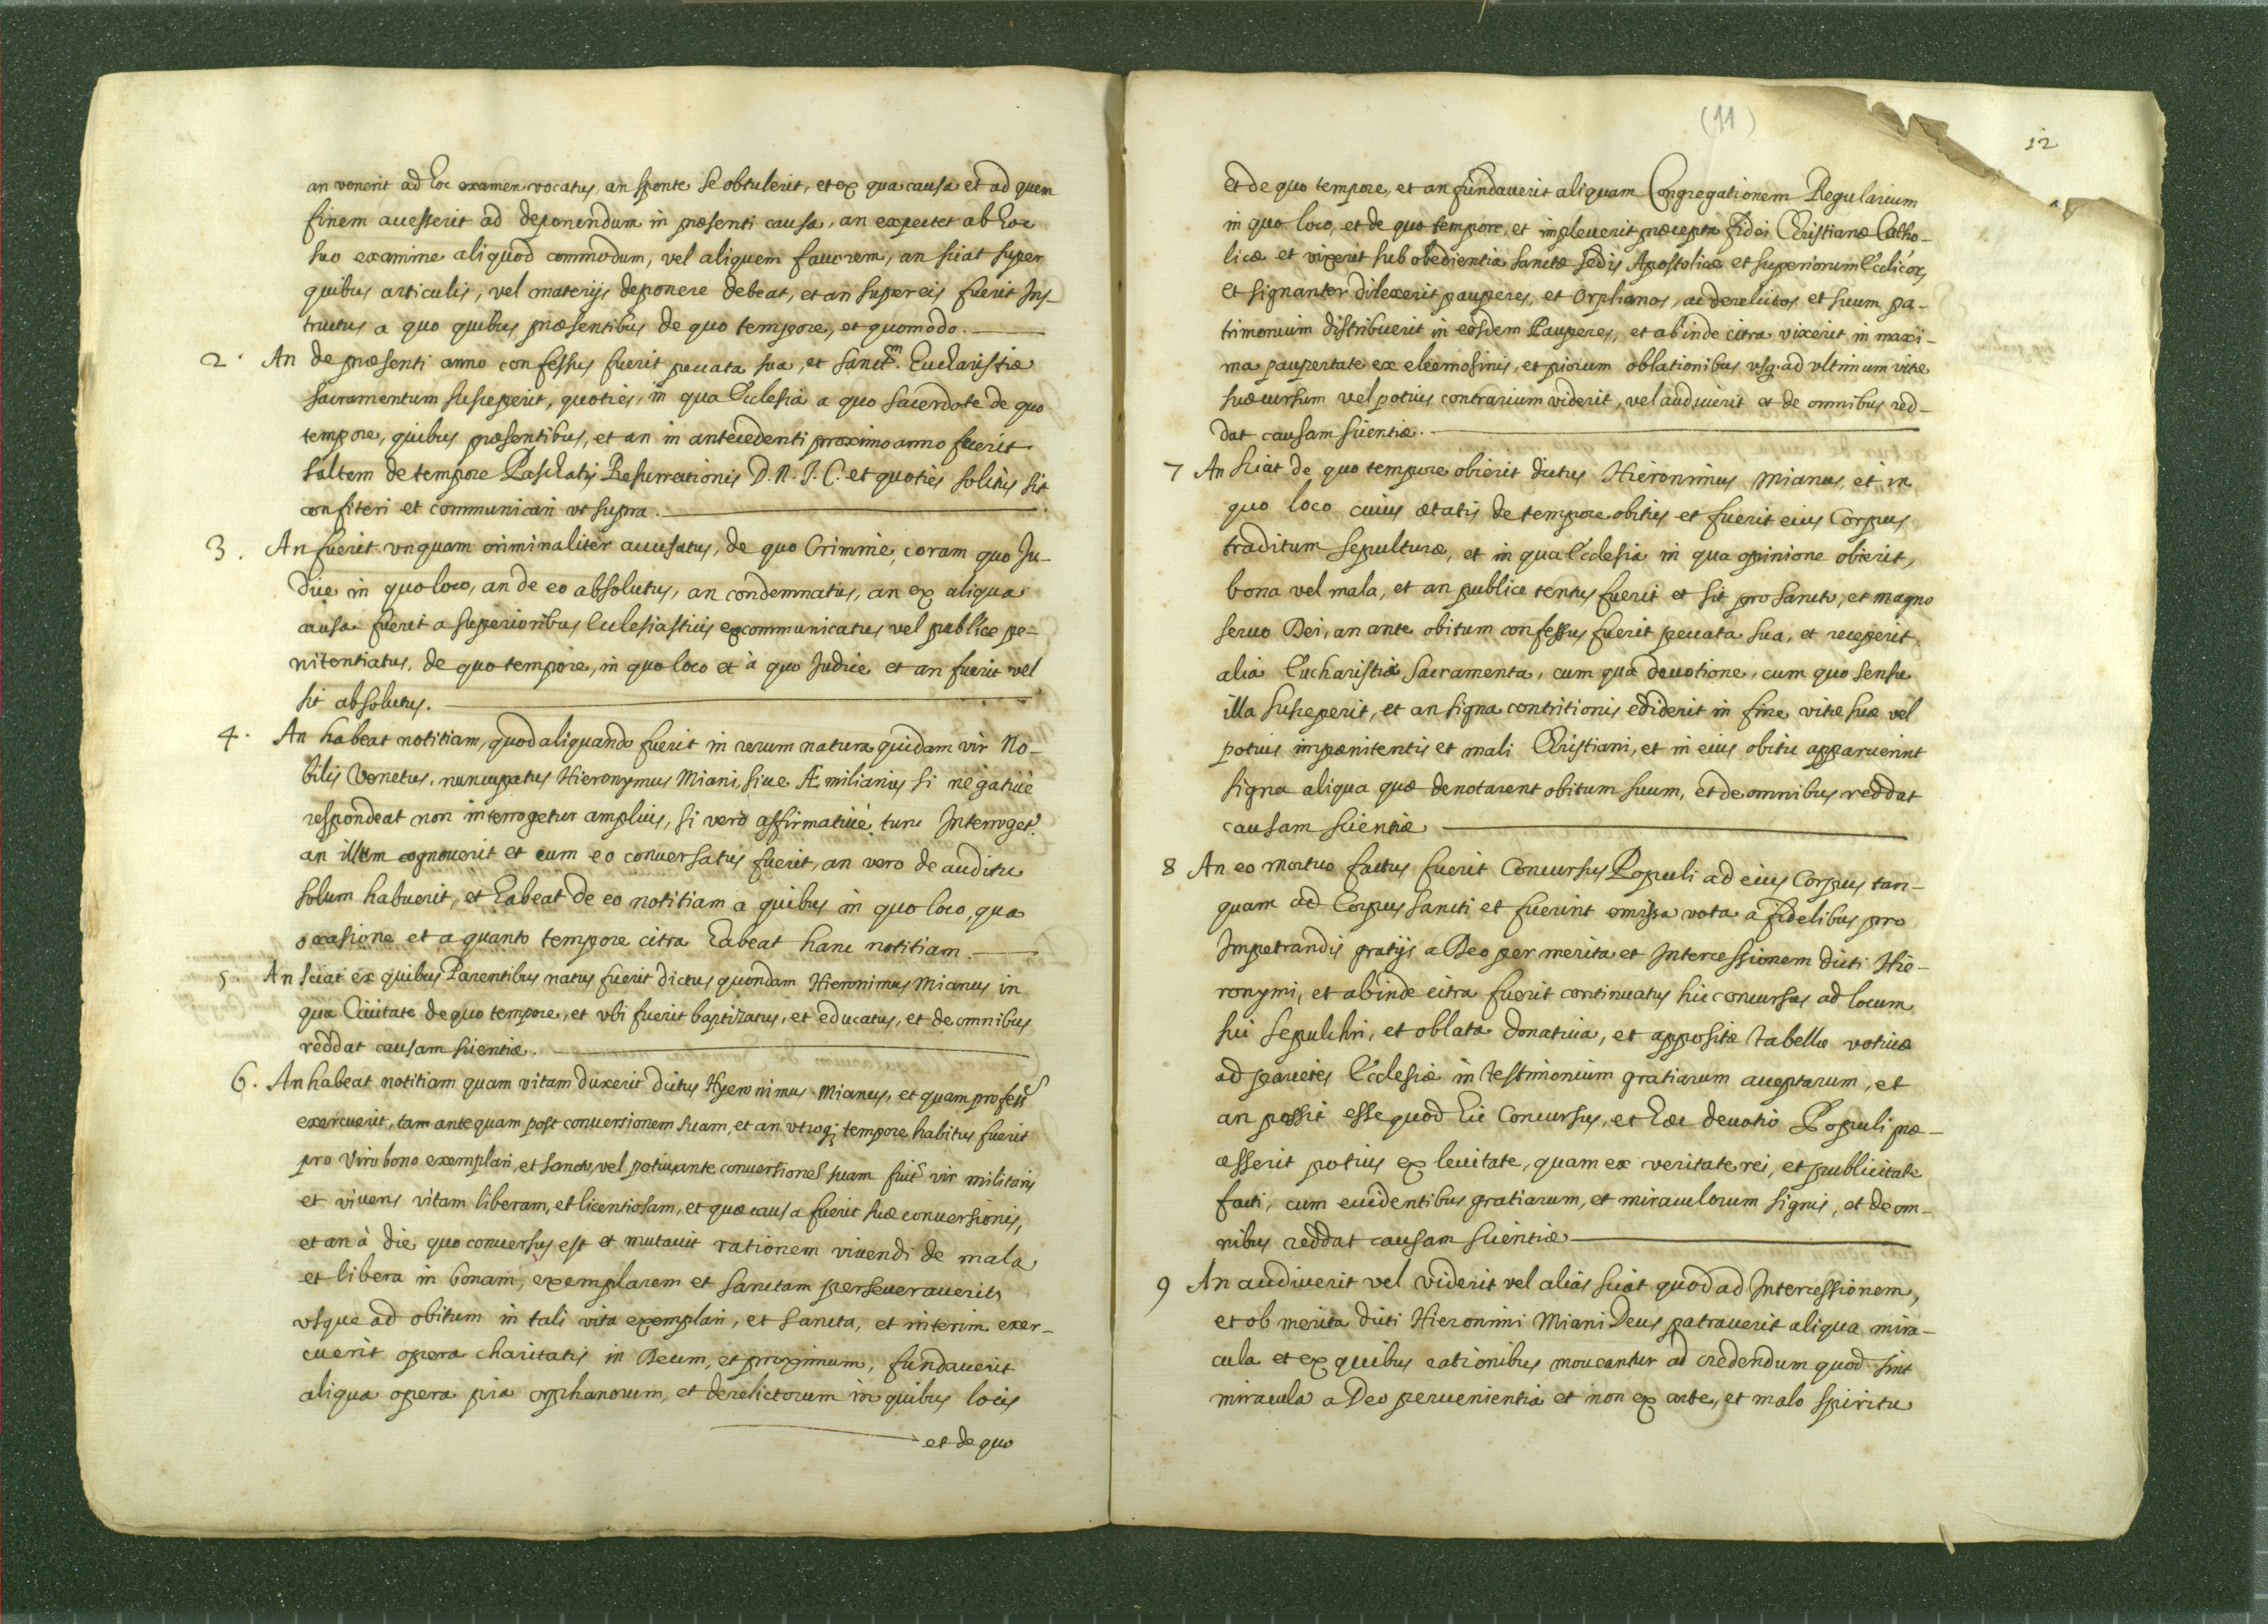 an venerit ad hoc examen vocatus, an sponte se obtulerit, et ex qua causa et ad quem
finem accesserit ad deponendum in præsenti causa, an expectet ab hoc
suo examine aliquod commodum, vel aliquem favorem, an sciat super
quibus articulis, vel materijs deponere debeat, et an super eis fuerit Ins-
tructus a quo quibus præsentibus de quo tempore, et quomodo.
2. An de præsenti anno confessus fuerit peccata sua, et sanct.m Eucharistiæ
sacramentum susceperit, quoties, in qua Ecclesia a quo sacerdote de quo
tempore, quibus præsentibus, et an in antecedenti proximo anno fuerit
saltem de tempore Paschatis Resurrectionis D. N. J. C. et quoties solitus sit
confiteri et communicari ut supra.
3. An fuerit unquam criminaliter accusatus, de quo Crimine, coram quo Ju-
dice in quo loco, an de eo absolutus, an condemnatus, an ex aliqua
causa fuerit a superioribus Ecclesiasticis excommunicatus vel publice pe-
nitentiatus, de quo tempore, in quo loco et à quo Judice et an fuerit vel
sit absolutus.
4. An habeat notitiam, quod aliquando fuerit in rerum natura quidam vir No-
bilis Venetus, nuncupatus Hieronymus Miani, sive Æmilianus si negativè
respondeat non interrogetur amplius, si verò affirmativè tunc Interroget.r
an illum cognoverit et cum eo conversatus fuerit, an vero de auditu
solum habuerit, et habeat de eo notitiam a quibus in quo loco, qua
occasione et a quanto tempore citra habeat hanc notitiam.
5. An sciat ex quibus Parentibus natus fuerit dictus quondam Hieronimus Mianus in
qua Civitate de quo tempore, et vbi fuerit baptizatus, et educatus, et de omnibus
reddat causam scientiæ.
6. An habeat notitiam quam vitam duxerit dictus Hyeronimus Mianus, et quam profess.
exercuerit, tam antequam post conversionem suam, et an utroq; tempore habitus fuerit
pro Viro bono exemplari, et sancto, vel potius ante conversione suam fuit vir militaris
et vivens vitam liberam, et licentiosam, et quæ causa fuerit suæ conversionis,
et an à die quo conversus est et mutavit rationem vivendi de mala
et libera in bonam, exemplarem et sanctam perseveraverit
usque ad obitum in tali vita exemplari, et sancta, et interim exer-
cuerit opera charitatis in Deum, et proximum, fundaverit
aliqua opera pia orphanorum, et derelictorum in quibus locis
et de quo
(11)
12
et de quo tempore, et an fundaverit aliquam Congregationem Regularium
in quo loco, et de quo tempore, et impleverit præcepta fidei Christianæ Catho-
licæ et vixerit sub obedientia sanctæ sedis Apostolicæ et superiorum Ecclicor,
et signanter dilexerit pauperes, et Orphanos, ac derelictos et suum pa-
trimonium distribuerit in eosdem Pauperes, et ab inde citra vixerit in maxi-
ma paupertate ex eleemosinis, et piorum oblationibus usq. ad ultimum vitæ
suæ cursum vel potius contrarium viderit, vel audiuerit et de omnibus red-
dat causam scientiæ.
7 An sciat de quo tempore obierit dictus Hieronimus Mianus, et in
quo loco cuius ætatis de tempore obitus et fuerit eius Corpus
traditum sepulturæ, et in qua Ecclesia in qua opinione obierit,
bona vel mala, et an publice tentus fuerit et sit pro sancto, et magno
servo Dei, an ante obitum confessus fuerit peccata sua, et receperit
alia Eucharistiæ Sacramenta, cum qua devotione, cum quo sensu
illa susceperit, et an signa contritionis ediderit in fine vitæ suæ vel
potius impænitentis et mali Christiani, et in eius obitu apparuerint
signa aliqua quæ denotarent obitum suum, et de omnibus reddat
causam scientiæ
8 An eo mortuo factus fuerit Concursus Populi ad eius Corpus tan-
quam ad Corpus sancti et fuerint emissa vota a fidelibus pro
Impetrandis gratijs a Deo per merita et Intercessionem dicti Hie-
ronymi, et ab inde citra fuerit continuatus hic concursus ad locum
sui sepulchri, et oblata donativa, et appositæ tabellæ votivæ
ad parietes Ecclesiæ in testimonium gratiarum acceptarum, et
an possit esse quod hic Concursus, et hæc devotio Populi pro-
cesserit potius ex levitate, quam ex veritate rei, et publicitate
facti, cum evidentibus gratiarum, et miraculorum signis, et de om-
nibus reddat causam scientiæ
9 An audiverit vel viderit vel alias sciat quod ad Intercessionem,
et ob merita dicti Hieronimi Miani Deus patraverit aliqua mira-
cula et ex quibus rationibus moveantur ad credendum quod sint
miracula a Deo pervenientia et non ex arte, et malo spiritu